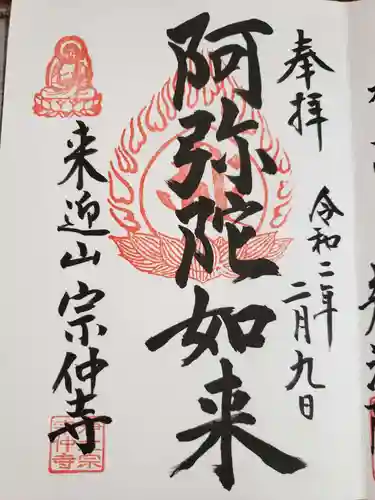 奉拝
令和二年
二月九日
阿弥陀如来
来迎山宗仲寺